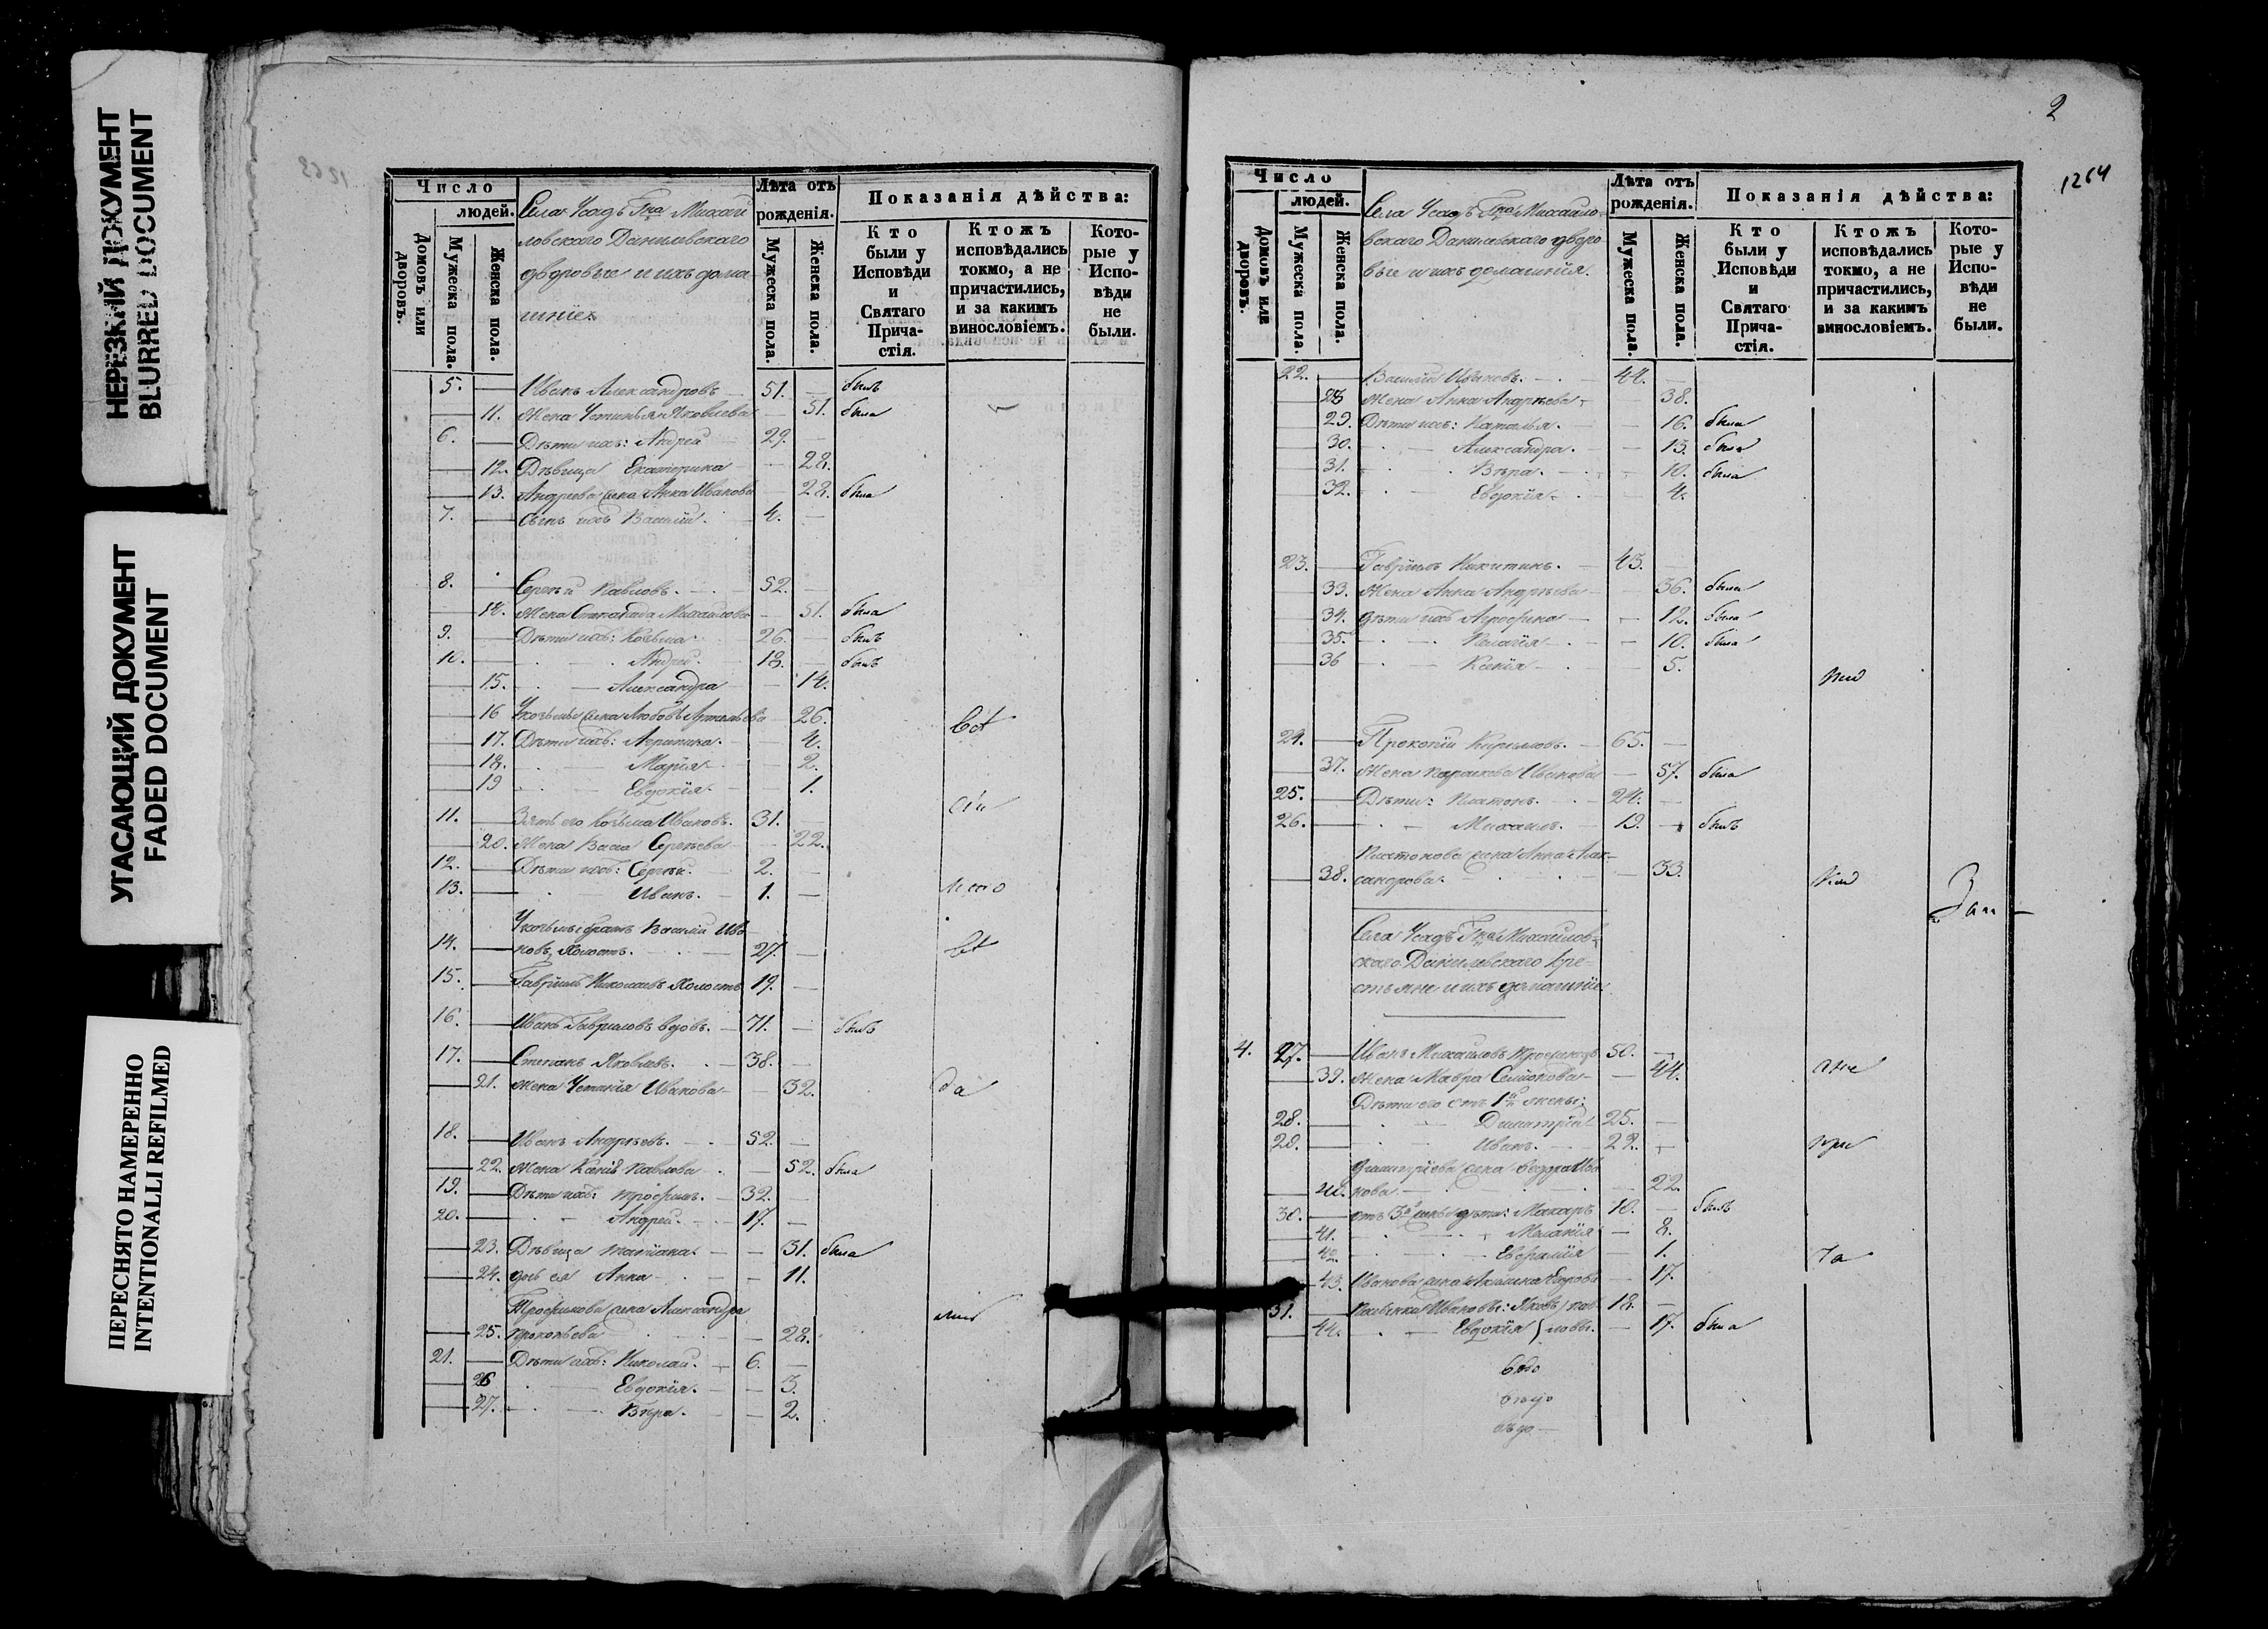 НЕРЕЗКИЙ ДОКУМЕНТ
BLURRED DOCUMENT
УГАСАЮЩИЙ ДОКУМЕНТ
FADED DOCUMENT
ПЕРЕСНЯТО НАМЕРЕННО
INTENTIONALLI REFILMED
Число
людей.
Домовъ или дворовъ.
Мужеска пола.
Женска пола.
Села Усадъ Гна Михай
ловскаго Данилевскаго
дворовые и ихъ дома
шніе
Лѣта отъ рожденія.
Мужеска пола.
Женска пола.
Показанія дѣйства:
Кто были у Исповѣди и Святаго Причастія.
Ктожъ исповѣдались токмо, а не причастились, и за какимъ винословіемъ.
Которые у Исповѣди не были.
5. Иванъ Александровъ 51. былъ
11. Жена Устинья Яковлева 51. была
6. Дѣти ихъ: Андрей 29.
12. Дѣвица Екатерина 28.
13. Андреева жена Анна Иванова 28. была
7. Сынъ ихъ Василій. 4.
8. Сергѣй Павловъ. 52.
14. Жена Михайлова 51. была
9. Дѣти ихъ: Козьма 26. былъ
10. Андрей. 18. былъ
15. Александра 14.
16 жена Любовь Артемьева 26.
17. Дѣти ихъ: Агрипина. 4.
18. Марія 2.
19 Евдокія. 1.
11. Зять его Козьма Ивановъ. 31.
20. Жена Васса Сергѣева 22.
12. Дѣти ихъ: Сергѣй. 2.
13. Иванъ. 1.
братъ Василій Ива
14. новъ, холостъ. 27.
15. Гавріилъ Николаевъ холостъ 19.
16. Иванъ Гавриловъ вдовъ. 71. былъ
17. Степанъ Яковлевъ. 38.
21. Жена Устинія Иванова 32.
18. Иванъ Андрѣевъ. 52.
22. Жена Ксенія Павлова 52. была
19. Дѣти ихъ: Трофимъ. 32.
20. Андрей. 17.
23. Дѣвица Татіана. 31. была
24. дочь ея Анна 11.
Трофимова жена Александра
25. Прокопьева 28.
21. Дѣти ихъ: Николай. 6.
26 Евдокія. 3.
27. Вѣра. 2.
2
1264
Число
людей.
Домовъ или дворовъ.
Мужеска пола.
Женска пола.
Села Усадъ Гна Михайло
вскаго Данилевскаго дворо
вые и ихъ домашнія.
Лѣта отъ рожденія.
Мужеска пола.
Женска пола.
Показанія дѣйства:
Кто были у Исповѣди и Святаго Причастія.
Ктожъ исповѣдались токмо, а не причастились, и за какимъ винословіемъ.
Которые у Исповѣди не были.
22. Василій Ивановъ. 44.
28 Жена Анна Андрѣева 38.
29. Дѣти ихъ: Наталья. 16. была
30. Александра. 13. была
31. Вѣра. 10. была
32. Евдокія 4.
23. Гавріилъ Никитинъ. 43.
33. Жена Анна Андрѣева 36. была
34. дѣти ихъ Агрофина 12. была
35. Пелагія 10. была
36 Ксенія 5.
24. Прокопій Кириловъ. 65.
37. Жена Парасковья Иванова 57. была
25. Дѣти: Платонъ. 24.
26. Михаилъ. 19. былъ
Платонова жена Анна Алек
38. сандрова. 33.
Села Усадъ Гна Михайлов
скаго Данилевскаго кре
стьяне и ихъ домашніе
4. 27. Иванъ Михайловъ 50.
39. Жена Мавра Семіонова 44.
Дѣти его отъ 1й жены:
28. Димитрій 25.
29. Иванъ. 22.
Димитріева жена Ива
40. нова 22.
30. отъ дѣти: Макаръ 10. былъ
41. Меланія 8.
42. 1.
43. Иванова жена Егрова 17.
31. 18.
44. Евдокія 17. была